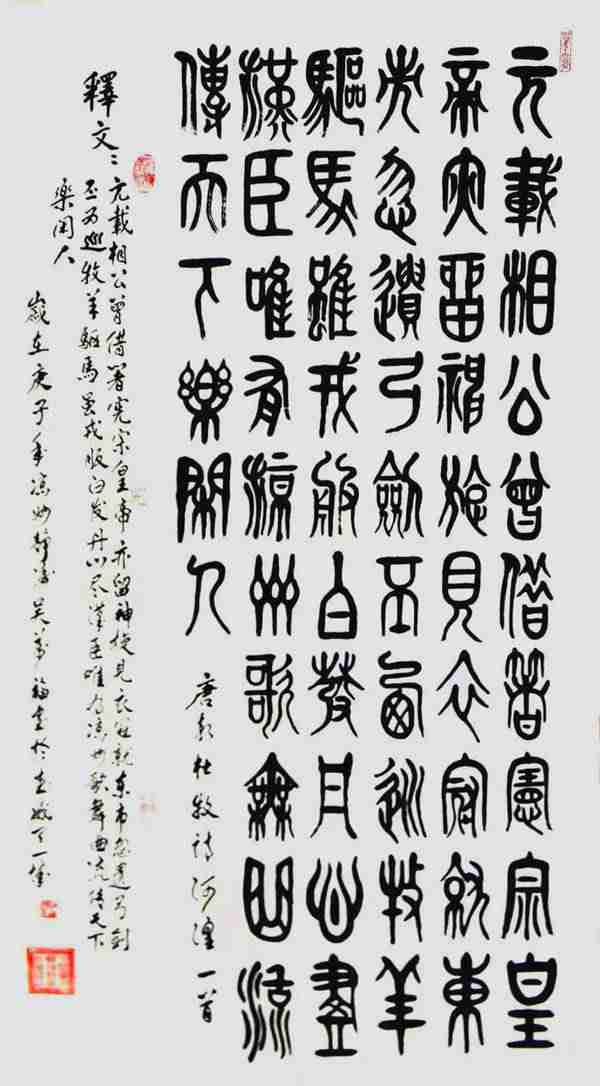 元載相公曾借箸憲宗皇
帝亦留神旋見衣冠就東
市忽遺弓劍不西巡牧羊
驅馬雖戎服白發丹心盡
漢臣唯有涼州歌舞曲流
傳天下樂閑人
唐朝杜牧詩河湟一首
釋文：元載相公曾借箸憲宗皇帝亦留神旋见衣冠就东市忽遗弓剑
不西巡牧羊驱馬虽戎服白发丹心尽漢臣唯有凉州歌舞曲流传天下
樂闲人
歲在庚子年凉州